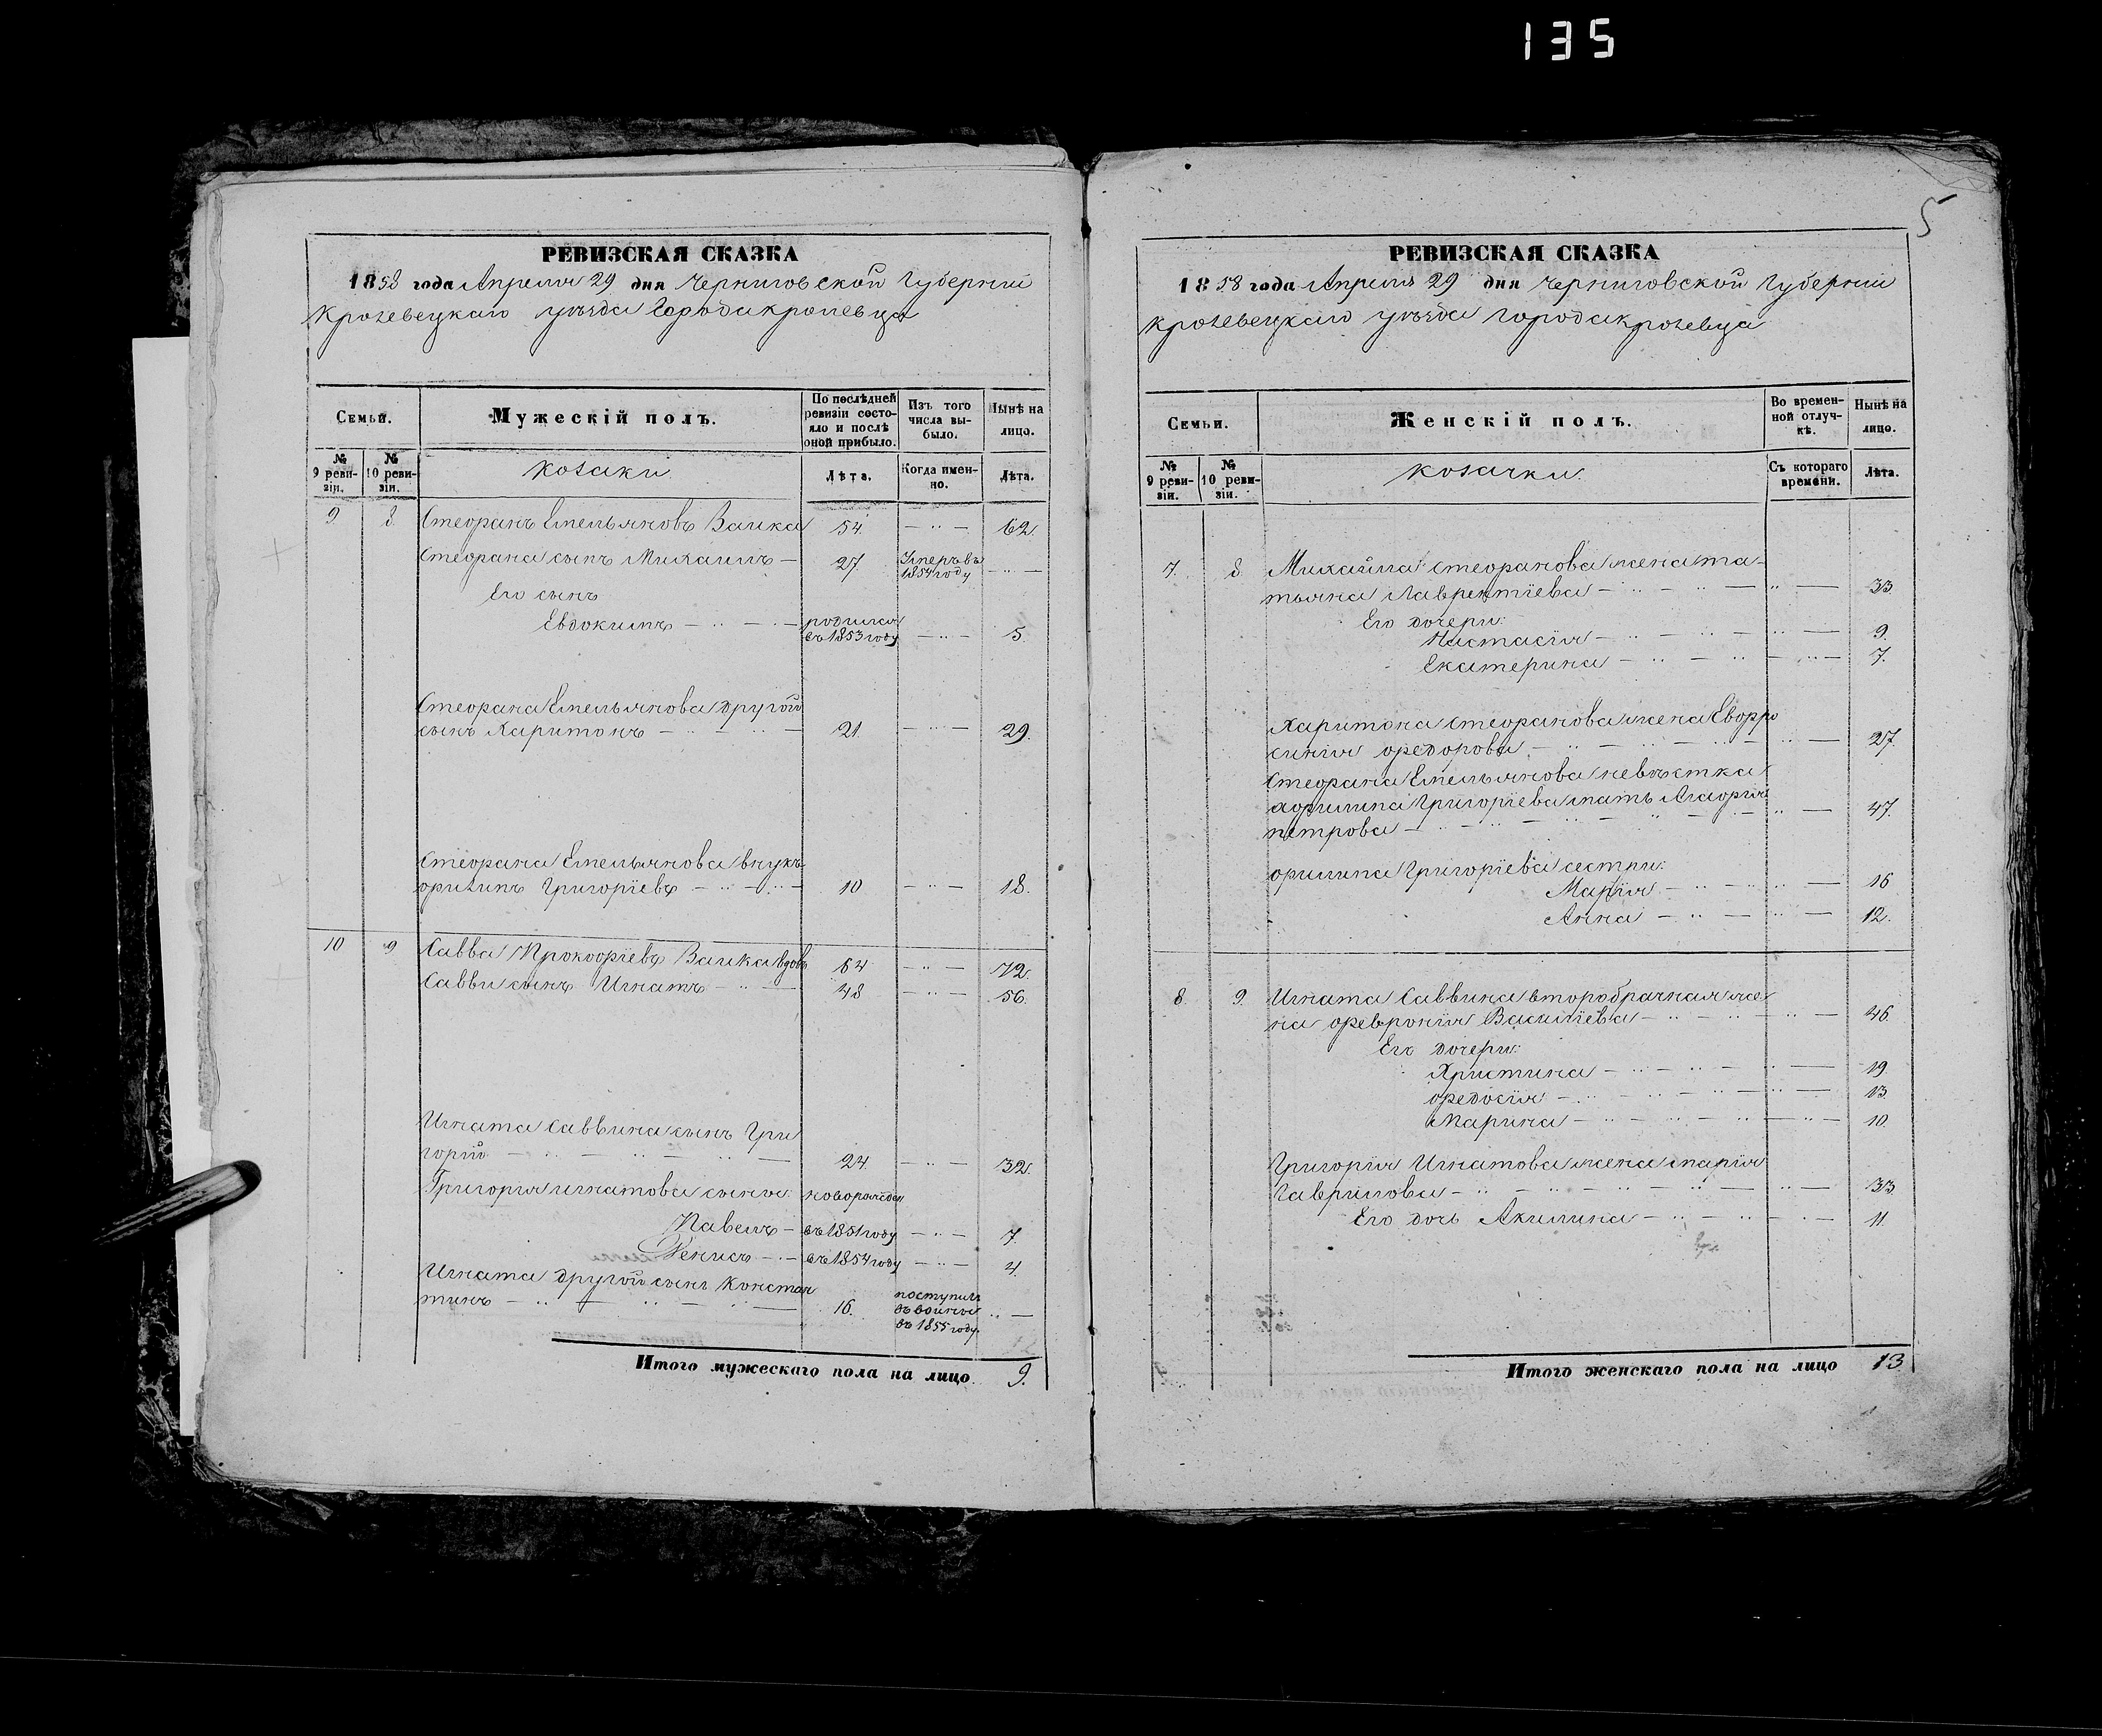 135
5
РЕВИЗСКАЯ СКАЗКА
1858 года Апреля 29 дня Черниговской Губерніи
Кролевецкаго уѣзда Города Кролевца
Семьи.
Мужескій полъ.
По послѣдней ревизіи состояло и послѣ оной прибыло.
Изъ того числа выбыло.
Нынѣ на лицо.
№ 9 ревизіи.
№ 10 ревизіи.
козаки
Лѣта.
Когда именно.
Лѣта.
9 8 Стефанъ Емельяновъ Заика 54. — „ — 62.
Стефана сынъ Михаилъ — 27 Умеръ въ 1854 году — „ —
Его сынъ
Евдокимъ — „ — родился въ 1853 году — „ — 5.
Стефана Емельянова другой
сынъ Харитонъ — „ — „ — 21. — „ — 29.
Стефана Емельянова внукъ
Григоріевъ — „ — „ — 10 — „ — 18.
10 9 Савва Прокофіевъ Заика вдовъ 64 — „ — 72.
Саввы сынъ Игнатъ — „ — 48 — „ — 56.
Игната Саввина сынъ Гри
горій — „ — „ — „ — 24. — „ — 32.
Григорія Игнатова сынья: новорожден
Павелъ — въ 1851 году — „ — 7.
Денисъ — „ — въ 1854 году — „ — 4.
Игната другой сынъ Констан
тинъ — „ — „ — „ — 16. поступилъ въ 1855 году. „ —
Итого мужескаго пола на лицо 9.
РЕВИЗСКАЯ СКАЗКА
1858 года Апреля 29 дня Черниговской Губерніи
Кролевецкаго уѣзда Города Кролевца
Семьи.
Женскій полъ.
Во временной отлучкѣ.
Нынѣ на лицо.
№ 9 ревизіи.
№ 10 ревизіи.
козачки.
Съ котораго времени.
Лѣта.
7. 8 Михайла Стефанова жена Та-
тьяна Лаврентіева — „ — „ — „ — 33.
Его дочери:
Настасія — „ — „ — „ — 9.
Екатерина — „ — „ — „ — 7.
Харитона Стефанова жена Евфро
синія Федорова — „ — „ — „ — „ — 27.
Стефана Емельянова невѣстка
Григоріева мать Агафія
Петрова — „ — „ — „ — „ — „ — 47.
Григоріева сестри:
Марія — „ — „ — „ — 16
Анна — „ — „ — 12.
8. 9. Игната Саввина второбрачная же
на Февронія Василіева — „ — „ — „ — 46.
Его дочери:
Христина — „ — „ — „ — 19.
Федосія — „ — „ — „ — 13.
Марина — „ — „ — „ — 10.
Григорія Игнатова жена Марія
Гаврилова — „ — „ — „ — „ — „ — 33.
Его дочь Акилина — „ — „ — „ — 11.
Итого женскаго пола на лицо 13